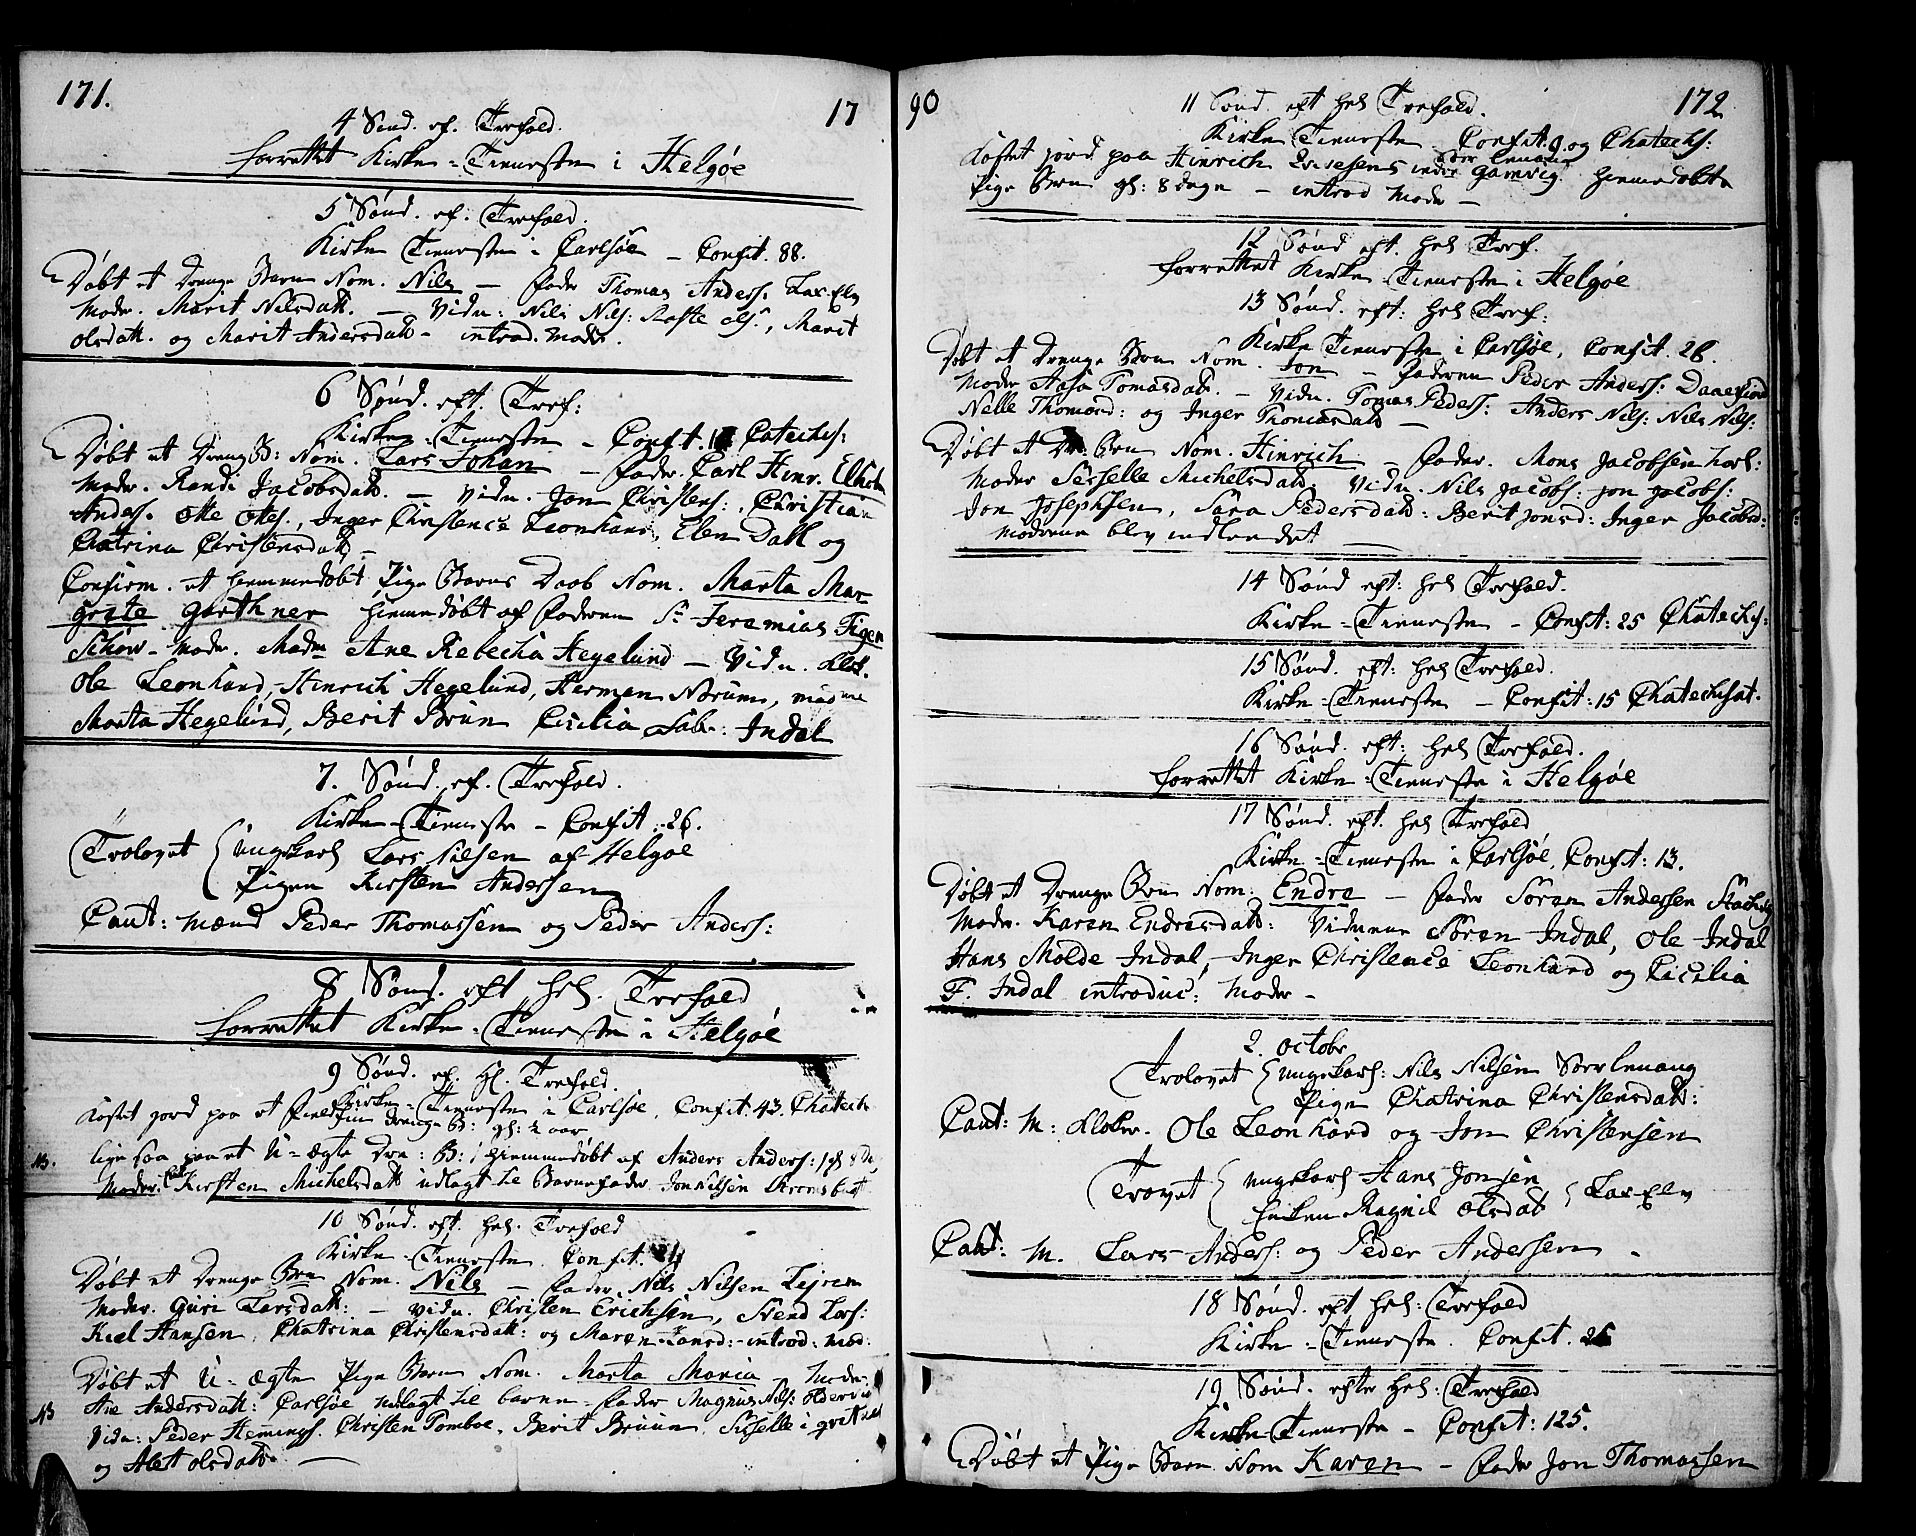 171.
17
4 Sønd. ef. Trefold.
forrettet Kirke-Tieneste i Helgøe
5 Sønd. ef. Trefold.
Kirke Tieneste i Carlsøe – Confit. 88.
Døbt et Drenge Barn Nom. Nils – Fader Thomas Anders: Lax-Elv
Moder. Marit Nilsdatt. – Vidn: Nils Nils: Ols:, Marit
olsdatt. og Marit Andersdatt – introd. Moder.
6 Sønd. eft. Tref:
Kirke-Tieneste – Confit. Catechis:
Døbt et Dreng B: Nom. Lars Johan – Fader. Carl Hinr.
Moder. Randi Jacobsdatt. – Vidn. Jon Christens:, Christian
Anders. Otte Ottes., Inger Christence Leonhard, Elen Dall og
Chatrina Christensdatt –
Confirm. et hiemmedøbt Pige Barns Daab Nom. Marta Mar
grete garthner hiemmedøbt af Faderen Sr Jeremias Figen
Schow – Moder. Madm Ane Rebecha Hegelund – Vidn. Klok.
Ole Leonhard, Hinrich Hegelund, Herman Bruun, madme
Marta Hegelund, Berit Brun Cicilia Sab: Indal
7. Sønd. ef. Trefold.
Kirke-Tieneste – Confit: 26.
Trolovet { ungKarl Lars Nilsen af Helgøe
Pigen Kirsten Andersen
Caut: mænd Peder Thomassen og Peder Anders:
8 Sønd. eft hel. Trefold
forrettet Kirke-Tieneste i Helgøe
9 Sønd. ef. Hl. Trefold.
Kirke-Tieneste i Carlsøe, Confit: 43. Chatech
Kastet jord paa et Field fin drenge B: gl: 2 aar
NB. lige saa paa et U-ægte Dre: B: / hiemmedøbt af Anders Anders: / gl 8 D:
Moder. Kirsten Michelsdatt udlagt til Barnefader Jon Nilsen
10 Sønd. eft. hel. Trefold
Kirke-Tieneste. Confit. 24
Døbt et Drenge Brn Nom. Nils – Fader Nils Nilsen
Moder. Guri Larsdatt: – Vidn. Christen Erichsen, Svend Lars:
Kiel Hansen, Chatrina Christensdatt: og Maren Hansd: – introd: mod:
Døbt et U-ægte Pige Barn Nom. Marta Maria – Moder.
NB Ane Andersdatt: Carlsøe udlagt til barne-fader Magnus Nils:
Vidn: Peder Hemings. Christen Tomboe, Berit Bruun, Sisselle i
og Alet olsdatt. –
90
172
11 Sønd. eft hel Trefold.
Kirke Tieneste Confit. 9 og Chatechs:
Kastet jord paa Hinrich indre Gamvig. hiemmedøbte
Pige Barn gl: 8 dage – introd Moder –
12 Sønd eft. hel Tref.
forrettet Kirke-Tieneste i Helgøe
13 Sønd. eft: hel Tref:
Kirke Tieneste i Carlsøe, Confit. 28.
Døbt et Drenge Brn Nom. Jon – Faderen Peder Anders: Daaefiord
Moder Aasa Tomasdatt. – Vidn. Tomas Peders: Anders Nils: Nils Nils:
Nelle Thomasd: og Inger Thomasdatt –
Døbt et Dr: Brn Nom. Hinrich – Fader. Mons Jacobsen
Moder Sisselle Michelsdatt: Vidn. Nils Jacobs: Jon Jacobs:
Jon Josephsen, Sara Pedersdatt: Berit Jonsd: Inger Jacobsd:
Moderen blev indleedet –
14 Sønd eft: hel Trefold.
Kirke-Tieneste – Confit: 25 Chatechis:
15 Sønd. eft: hel Trefold.
Kirke-Tieneste – Confit: 15 Chatechisat.
16 Sønd. eft: hel Trefold.
forrettet Kirke-Tieneste i Helgøe
17 Sønd. eft. hel Trefold
Kirke-Tieneste i Carlsøe, Confit: 13.
Døbt et Drenge Brn Nom: Endre – Fader Sören Andersen
Moder. Karen Endresdatt: Vidnene Sören Indal, Ole Indal
Hans Molde Indal, Inger Christence Leonhard og Cicilia
F. Indal introduc: Moder –
2. octobr
Trolovet { ungkarl: Nils Nilsen Sørlenang
Pigen Chatrina Christensdatt:
Caut: M: Kloker. Ole Leonhard og Jon Christensen
Trovet { ungkarl Hans Jonsen
Enken Ragnil olsdatt } Lax-Elv
Caut: M. Lars Anders: og Peder Andersen –
18 Sønd. eft hel: Trefold
Kirke-Tieneste. Confit. 26
19 Sønd. efter hel: Trefold
Kirke-Tieneste – Confit: 125.
Døbt et Pige Barn Nom Karen – Fader Jon Thomassen